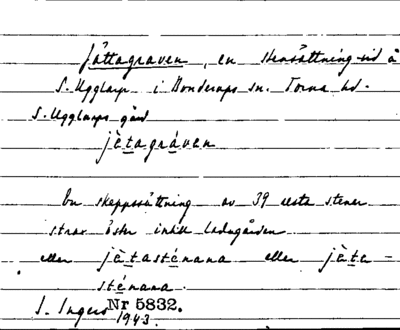 Jättagraven, en stensättning vid å
S. Ugglarp i Bonderups sn. Torna hd.
S. Ugglarps gård
jètagráven
En skeppssättning av 39 resta stenar
strax öster intill ladugården
eller jètasténana eller jèta-
sténana.
S. Ingers Nr 5832.
1943.